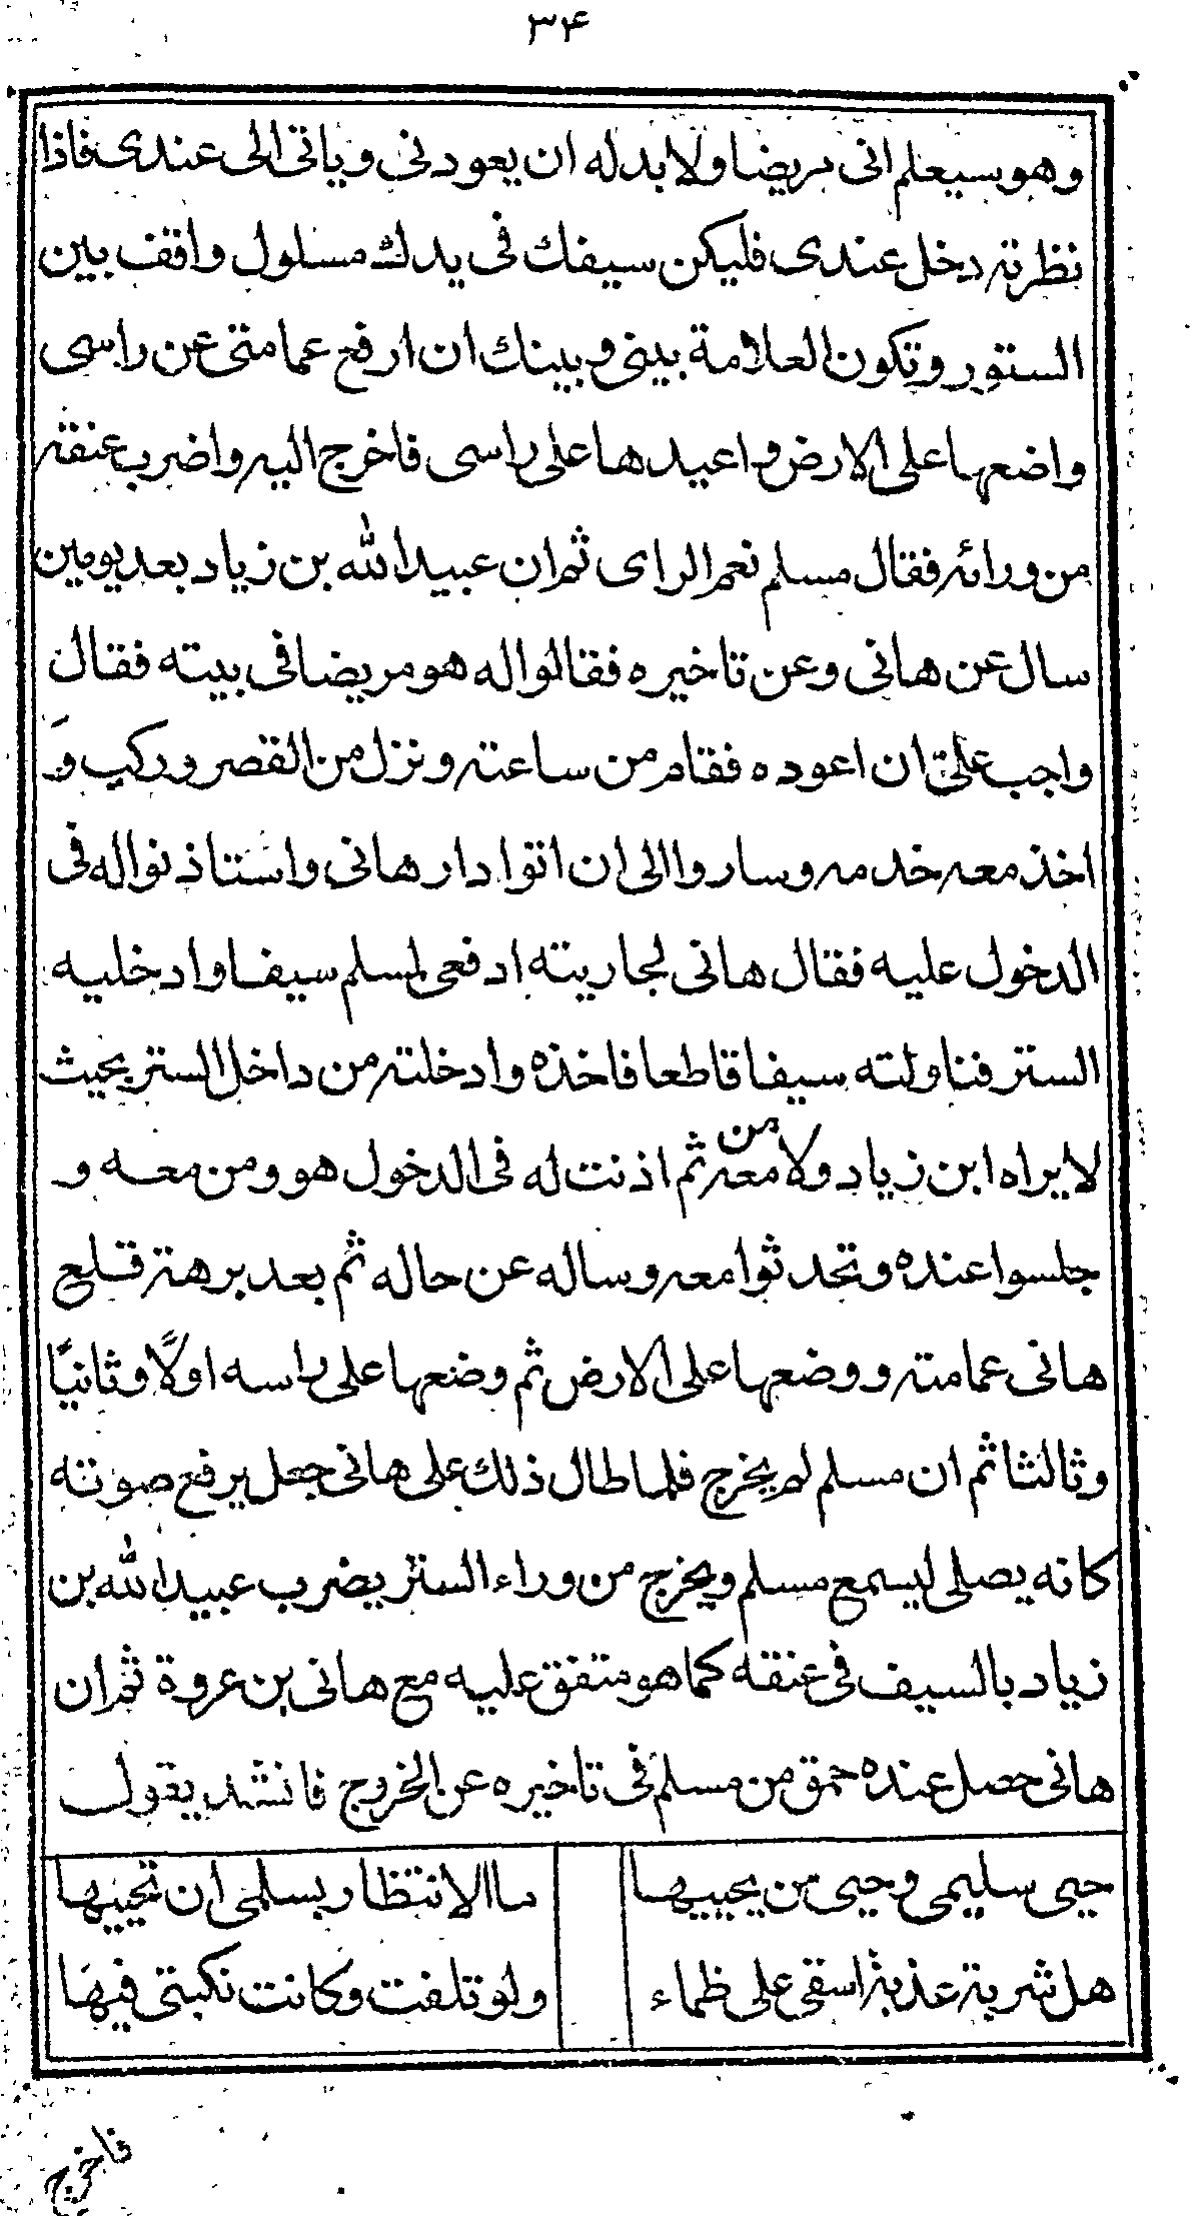 ۳۴
وهو سيعلم انى مريضا ولا بد له ان يعودنى وياتى الى عندى فاذا
نظرته دخل عندى فليكن سيفك فى يدك مسلول واقف بين
الستور وتكون العلامة بينى وبينك ان ارفع عمامتى عن راسى
واضعها على الارض واعيدها على راسى فاخرج اليه واضرب عنقه
من ورائه فقال مسلم نعم الراى ثم ان عبيد الله بن زياد بعد يومين
سال عن هانى وعن تاخيره فقالوا له هو مريضا فى بيته فقال
واجب علىّ ان اعوده فقام من ساعته ونزل من القصر وركب وَ
اخذ معه خدمه وساروا الى ان اتوا دار هانى واستاذنوا له فى
الدخول عليه فقال هانى لجاريته ادفعى لمسلم سيفا وادخليه
الستر فناولته سيفا قاطعا فاخذه وادخلته من داخل الستر بحيث
لا يراه ابن زياد ولا من معه ثم اذنت له فى الدخول هو ومن معه و
جلسوا عنده وتحدثوا معه وساله عن حاله ثم بعد برهة قلع
هانى عمامته ووضعها على الارض ثم وضعها على راسه اولًا وثانيًا
وثالثا ثم ان مسلم لم يخرج فلما طال ذلك على هانى جعل يرفع صوته
كانه يصلى ليسمع مسلم ويخرج من وراء الستر يضرب عبيد الله بن
زياد بالسيف فى عنقه كما هو متفق عليه مع هانى بن عروة ثم ان
هانى حصل عنده حمق من مسلم فى تاخيره عن الخروج فانشد يقول
ما الانتظار بسلمى ان تحييها حيى سليمى وحيى من يحييها
هل شربة عذبة اسقى على ظماء ولو تلفت وكانت نكبتى فيها
فاخرج